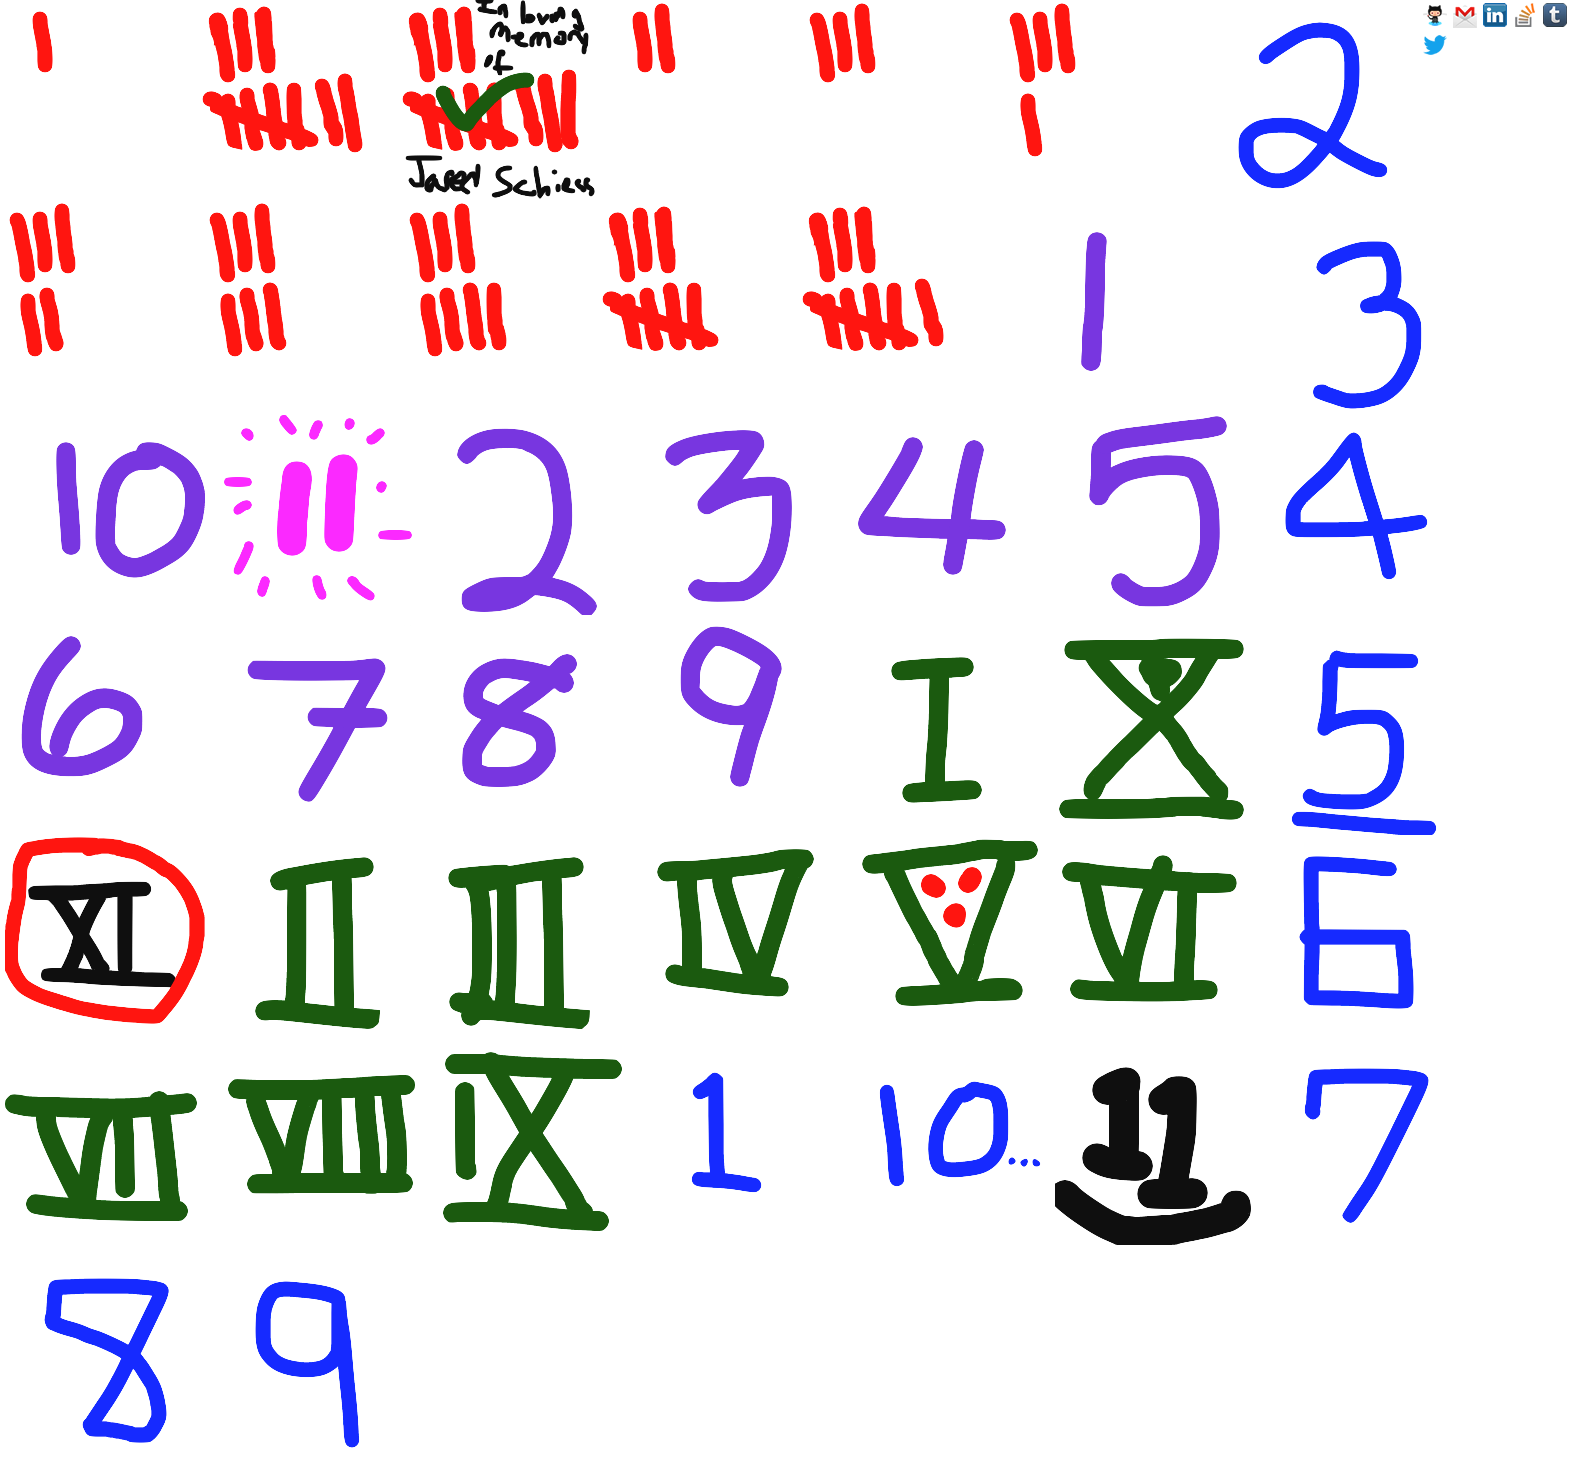 In loving
memory
of
Jared Schiess
2
1
3
10 11 2 3 4 5 4
6 7 8 9 I X 5
XI II III IV V VI 6
VII VIII IX 1 10... 11 7
8 9